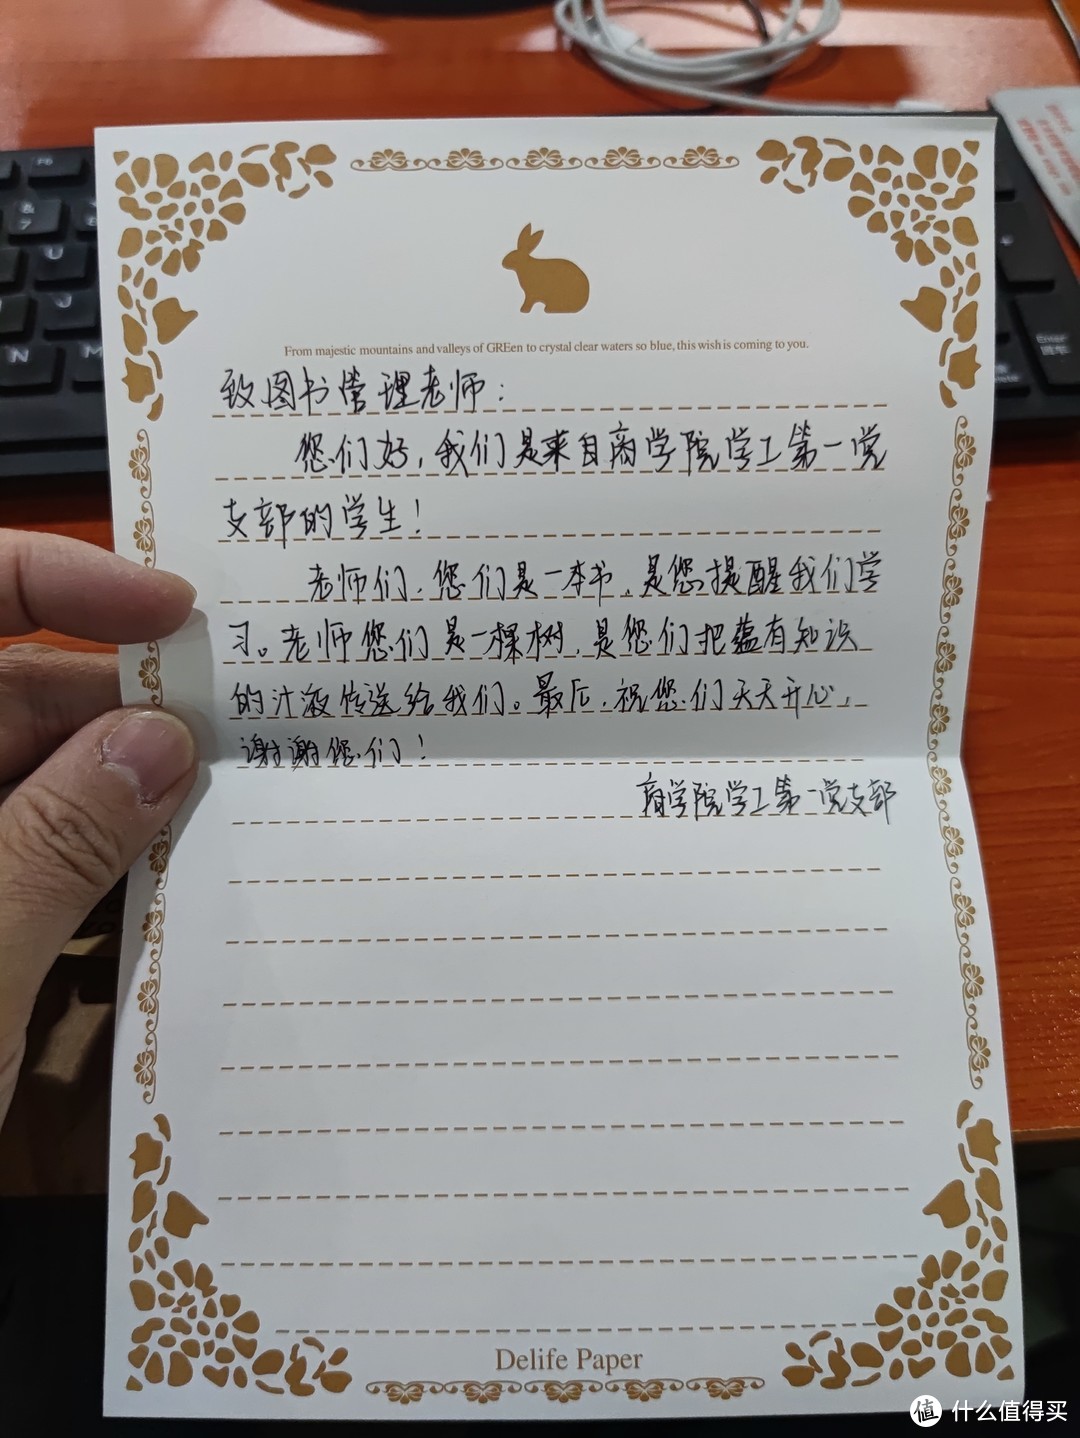 From majestic mountains and valleys of GREen to crystal clear waters so blue, this wish is coming to you.
致图书管理老师：
您们好，我们是来自商学院学工第一党
支部的学生！
老师们，您们是一本书，是您提醒我们学
习。老师您们是一棵树，是您们把蕴有知识
的汁液传送给我们。最后，祝您们天天开心，
谢谢您们！
商学院学工第一党支部
Delife Paper
值 什么值得买